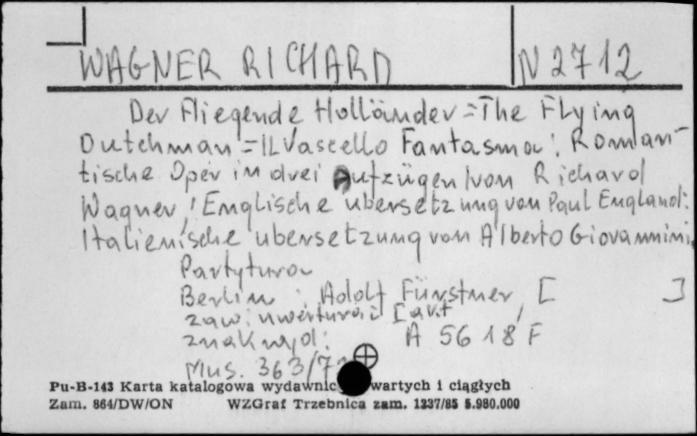 WAGNER RICHARD
N 2712
Der Fliegende Holländer = The Flying
Dutchman = Il Vascello Fantasma : Roman-
tische Oper in drei Aufzügen / von Richard
Wagner ; Englische ubersetzung von Paul England ;
Italienische ubersetzung von Alberto Giovannini.
Partytura
Berlin : Adolf Fürstner, [ ]
zaw. uwertura i I akt
znak wyd. : A 5618 F
Mus. 363/7
Pu-B-143 Karta katalogowa wydawnic wartych i ciągłych
Zam. 864/DW/ON WZGraf Trzebnica zam. 1237/85 5.980.000